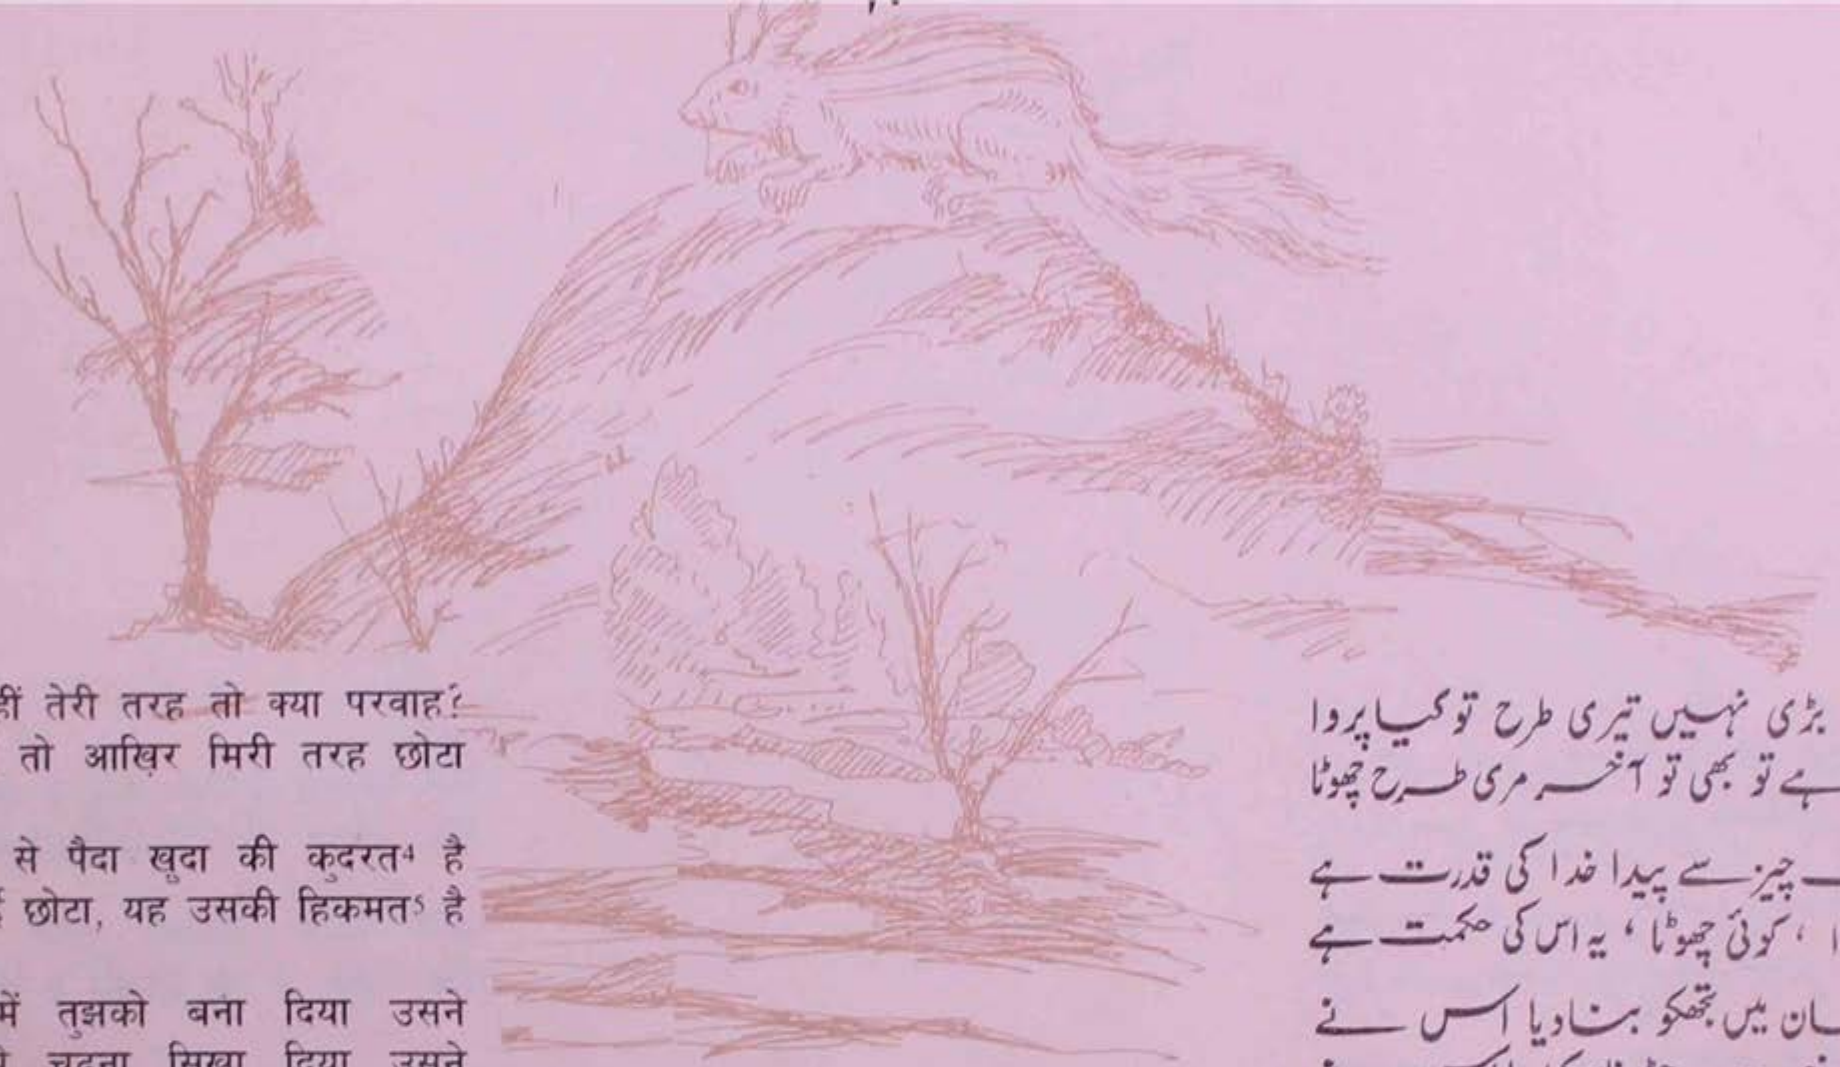 तेरी तरह तो क्या परवाह?
तो आख़िर मिरी तरह छोटा
से पैदा ख़ुदा की कुदरत⁴ है
छोटा, यह उसकी हिकमत⁵ है
में तुझको बना दिया उसने
चढ़ना सिखा दिया उसने
بڑی نہیں تیری طرح تو کیا پروا
ہے تو بھی تو آخر مری طرح چھوٹا
چیز سے پیدا خدا کی قدرت ہے
، کوئی چھوٹا ، یہ اس کی حکمت ہے
میں تجھکو بنا دیا اس نے